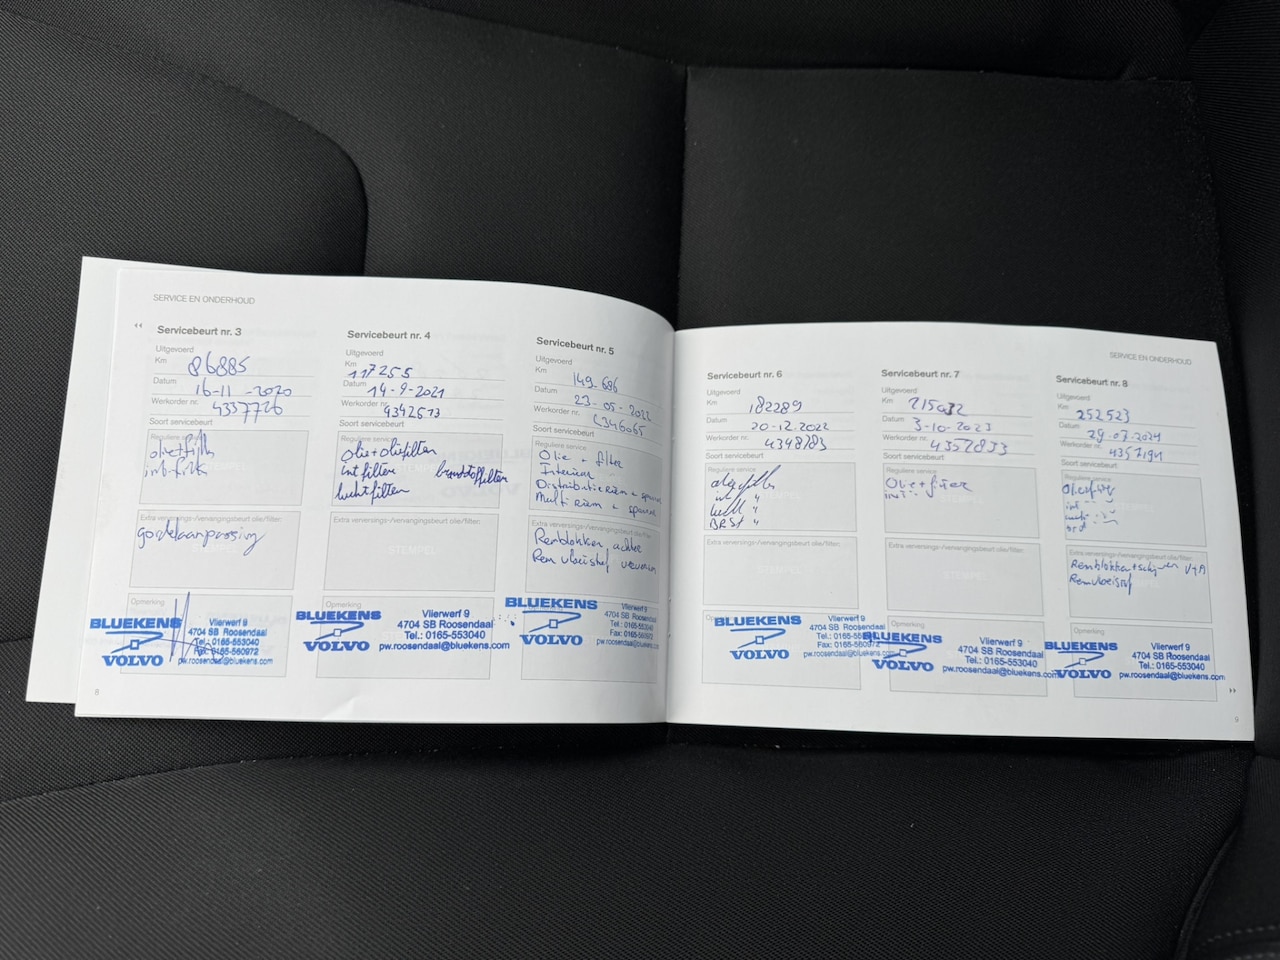 SERVICE EN ONDERHOUD
Servicebeurt nr. 3
Uitgevoerd
Km 86885
Datum 16-11-2020
Werkorder nr. 4337726
Soort servicebeurt
Reguliere service
olie+filt
int-filt
Extra verversings-/vervangingsbeurt olie/filter:
gordelaanpassing
Opmerking
BLUEKENS
VOLVO
Vlierwerf 9
4704 SB Roosendaal
Tel.: 0165-553040
Fax: 0165-560972
pw.roosendaal@bluekens.com
8
Servicebeurt nr. 4
Uitgevoerd
Km 117255
Datum 14-9-2021
Werkorder nr. 4342613
Soort servicebeurt
Reguliere service
Olie+oliefilter
int filter brandstoffilter
luchtfilter
Extra verversings-/vervangingsbeurt olie/filter:
STEMPEL
Opmerking
BLUEKENS
VOLVO
Vlierwerf 9
4704 SB Roosendaal
Tel.: 0165-553040
pw.roosendaal@bluekens.com
Servicebeurt nr. 5
Uitgevoerd
Km 149.686
Datum 23-05-2022
Werkorder nr.
Soort servicebeurt
Reguliere service
Olie + filter
Interieur
Distributieriem + spanner
Multi riem + spanner
Extra verversings-/vervangingsbeurt olie/filter:
Remblokken achter
Rem vloeistof
BLUEKENS
VOLVO
Vlierwerf 9
4704 SB Roosendaal
Tel.: 0165-553040
Fax: 0165-560972
pw.roosendaal@bluekens
SERVICE EN ONDERHOUD
Servicebeurt nr. 6
Uitgevoerd
Km 182289
Datum 20-12-2022
Werkorder nr. 4348783
Soort servicebeurt
Reguliere service
int "
lucht "
BRST "
Extra verversings-/vervangingsbeurt olie/filter:
BLUEKENS
VOLVO
Vlierwerf 9
4704 SB Roosendaal
Tel.: 0165-553040
Fax: 0165-560972
pw.roosendaal@bluekens
Servicebeurt nr. 7
Uitgevoerd
Km 215032
Datum 3-10-2023
Werkorder nr. 4352833
Soort servicebeurt
Reguliere service
Olie+filter
int
Extra verversings-/vervangingsbeurt olie/filter:
BLUEKENS
VOLVO
Vlierwerf 9
4704 SB Roosendaal
Tel.: 0165-553040
pw.roosendaal@bluekens.com
Servicebeurt nr. 8
Uitgevoerd
Km 252523
Datum 29-07-2024
Werkorder nr. 4357191
Soort servicebeurt
Reguliere service
Oliefilter
int
Extra verversings-/vervangingsbeurt olie/filter:
Remblokken+schijven V+A
Remvloeistof
BLUEKENS
VOLVO
Vlierwerf 9
4704 SB Roosendaal
Tel.: 0165-553040
pw.roosendaal@bluekens.com
9